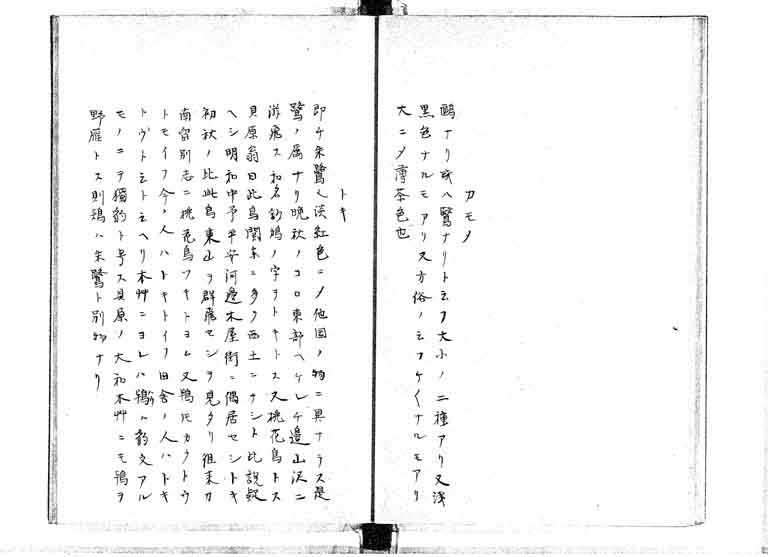 カモメ
鷗ナリ或ハ鷖ナリト云フ大小ノ二種アリ又浅
黒色ナルモアリ又方俗ノ云フケイケイナルモアリ
大ニメ薄茶色也
トキ
即チ朱鷺ニ淡紅色ニメ他国ノ物ニ異ナラス是
鷺ノ属ナリ晩秋ノコロ東部ヘケレケ邉山渓ニ
游飛ス和名鈔鴇ノ字ヲトキトス又桃花鳥トス
貝原翁曰此鳥関東ニ多ク西土ニナシト此説疑
ヘシ明和中予平安河邉木屋街ニ僑居セシトキ
初秋ノ比此鳥東山ヲ群飛セシヲ見タリ徂来カ
南留別志ニ桃花鳥ツキトヨム又鴇氏カウトウ
トモイフ今ノ人ハトキトイフ田舎ノ人ハドキ
トウトト云ヘリ本艸ニヨレハ鴇ハ豹文アル
モノニテ獨豹ト号ス貝原ノ大和本艸ニモ鴇ヲ
野雁トス則鴇ハ朱鷺ト別物ナリ